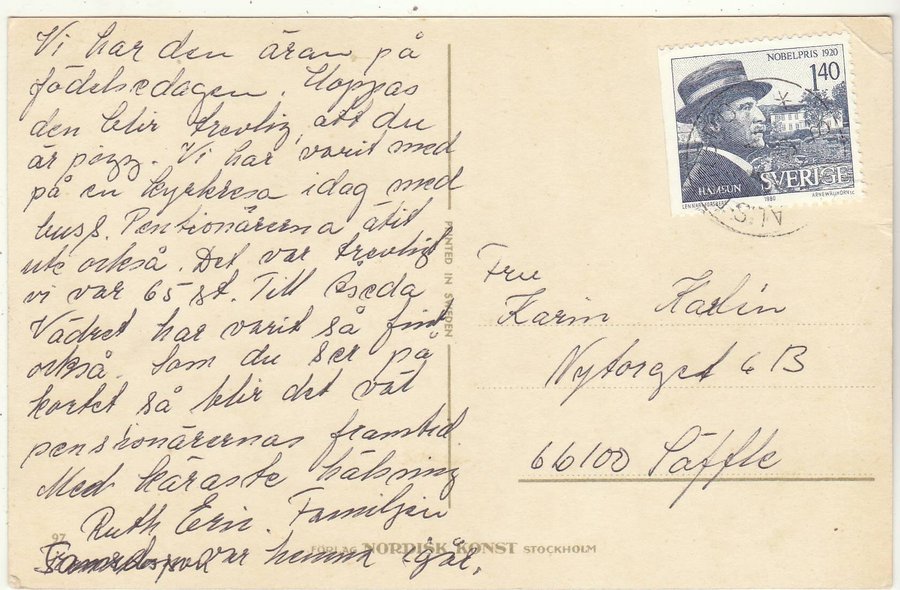 Vi har den äran på
födelsedagen. Hoppas
den blir trevlig, att du
är pigg. Vi har varit med
på en kyrkresa idag med
buss. Pentionärerna ätit
ute också. Det var trevligt
vi var 65 st. Till Åseda
Vädret har varit så fint
också. Som du ser på
kortet så blir det väl
pensionärernas framtid
Med käraste hälsning
Ruth Eric. Familjen
var hemma igår.
NOBELPRIS 1920
1.40
HAMSUN
SVERIGE
1980
PRINTED IN SWEDEN
Fru
Karin Karlin
Nytorget 6 B
66100 Säffle
97
FÖRLAG NORDISK KONST STOCKHOLM